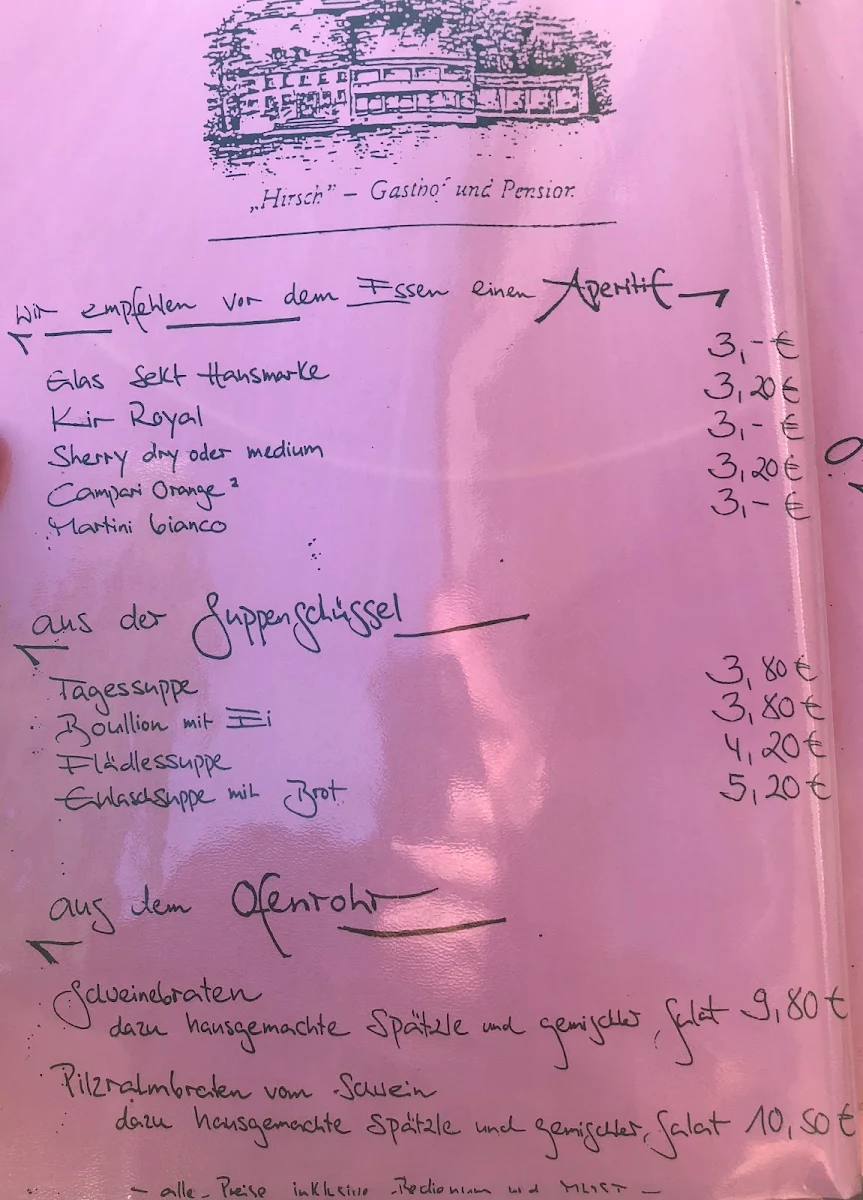 „Hirsch" – Gasthof und Pension
Wir empfehlen vor dem Essen einen Aperitif
Glas Sekt Hausmarke 3,- €
Kir Royal 3,20 €
Sherry dry oder medium 3,- €
Campari Orange ² 3,20 €
Martini bianco 3,- €
aus der Suppenschüssel
Tagessuppe 3,80 €
Boullion mit Ei 3,80 €
Flädlessuppe 4,20 €
Gulaschsuppe mit Brot 5,20 €
aus dem Ofenrohr
Schweinebraten
dazu hausgemachte Spätzle und gemischter Salat 9,80 €
Pilzrahmbraten vom Schwein
dazu hausgemachte Spätzle und gemischter Salat 10,50 €
- alle Preise inklusive Bedienung und MWST -